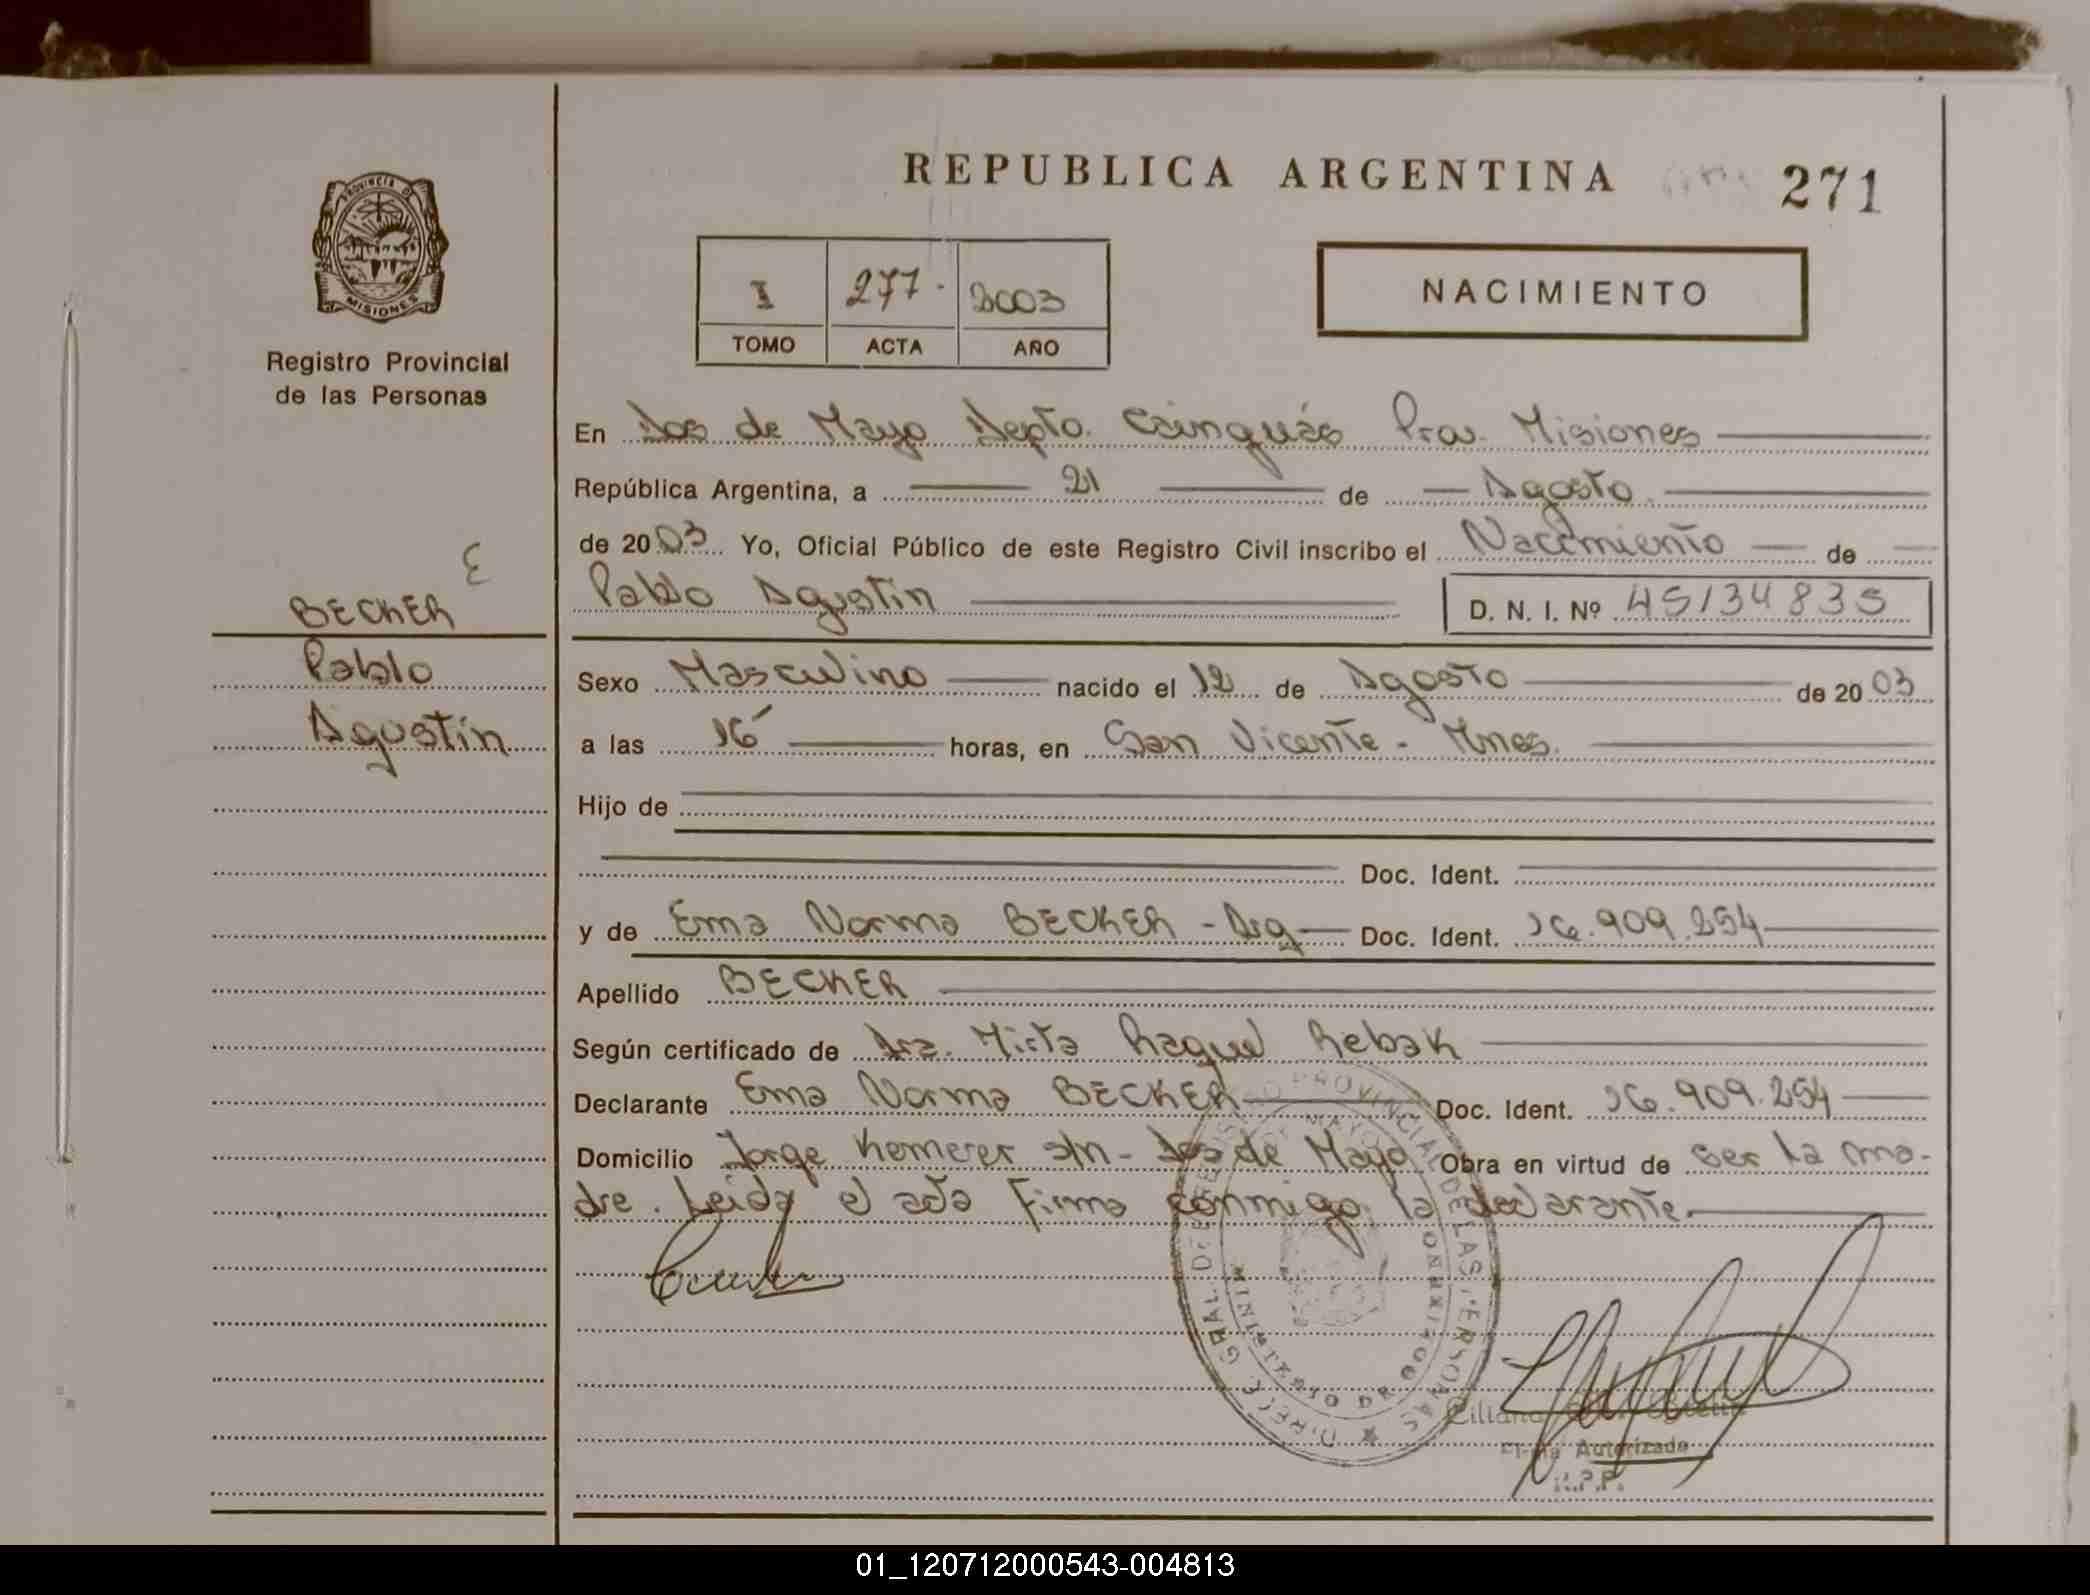 REPUBLICA ARGENTINA
271
PROVINCIA D
MISIONES
Registro Provincial
de las Personas
I 277. 2003
TOMO ACTA AÑO
NACIMIENTO
En Dos de Mayo Depto. Cainguás Prov. Misiones
República Argentina, a 21 de Agosto
de 2003 Yo, Oficial Público de este Registro Civil inscribo el Nacimiento de
Pablo Agustín D. N. I. Nº 45134835
E
BECKER
Pablo
Agustín
Sexo Masculino nacido el 12 de Agosto de 2003
a las 16 horas, en San Vicente - Mnes.
Hijo de
Doc. Ident.
y de Ema Norma BECKER - Arg Doc. Ident. 16.909.254
Apellido BECKER
Según certificado de Dra. Mirta Raquel Rebak
Declarante Ema Norma BECKER Doc. Ident. 16.909.254
Domicilio Jorge Kemerer s/n - Dos de Mayo Obra en virtud de ser la ma-
dre. Leida el acta firma conmigo la declarante.
PROVINCIAL DE LAS PERSONAS
MINISTERIO DE GOBIERNO
Autorizada
R.P.P.
01_120712000543-004813